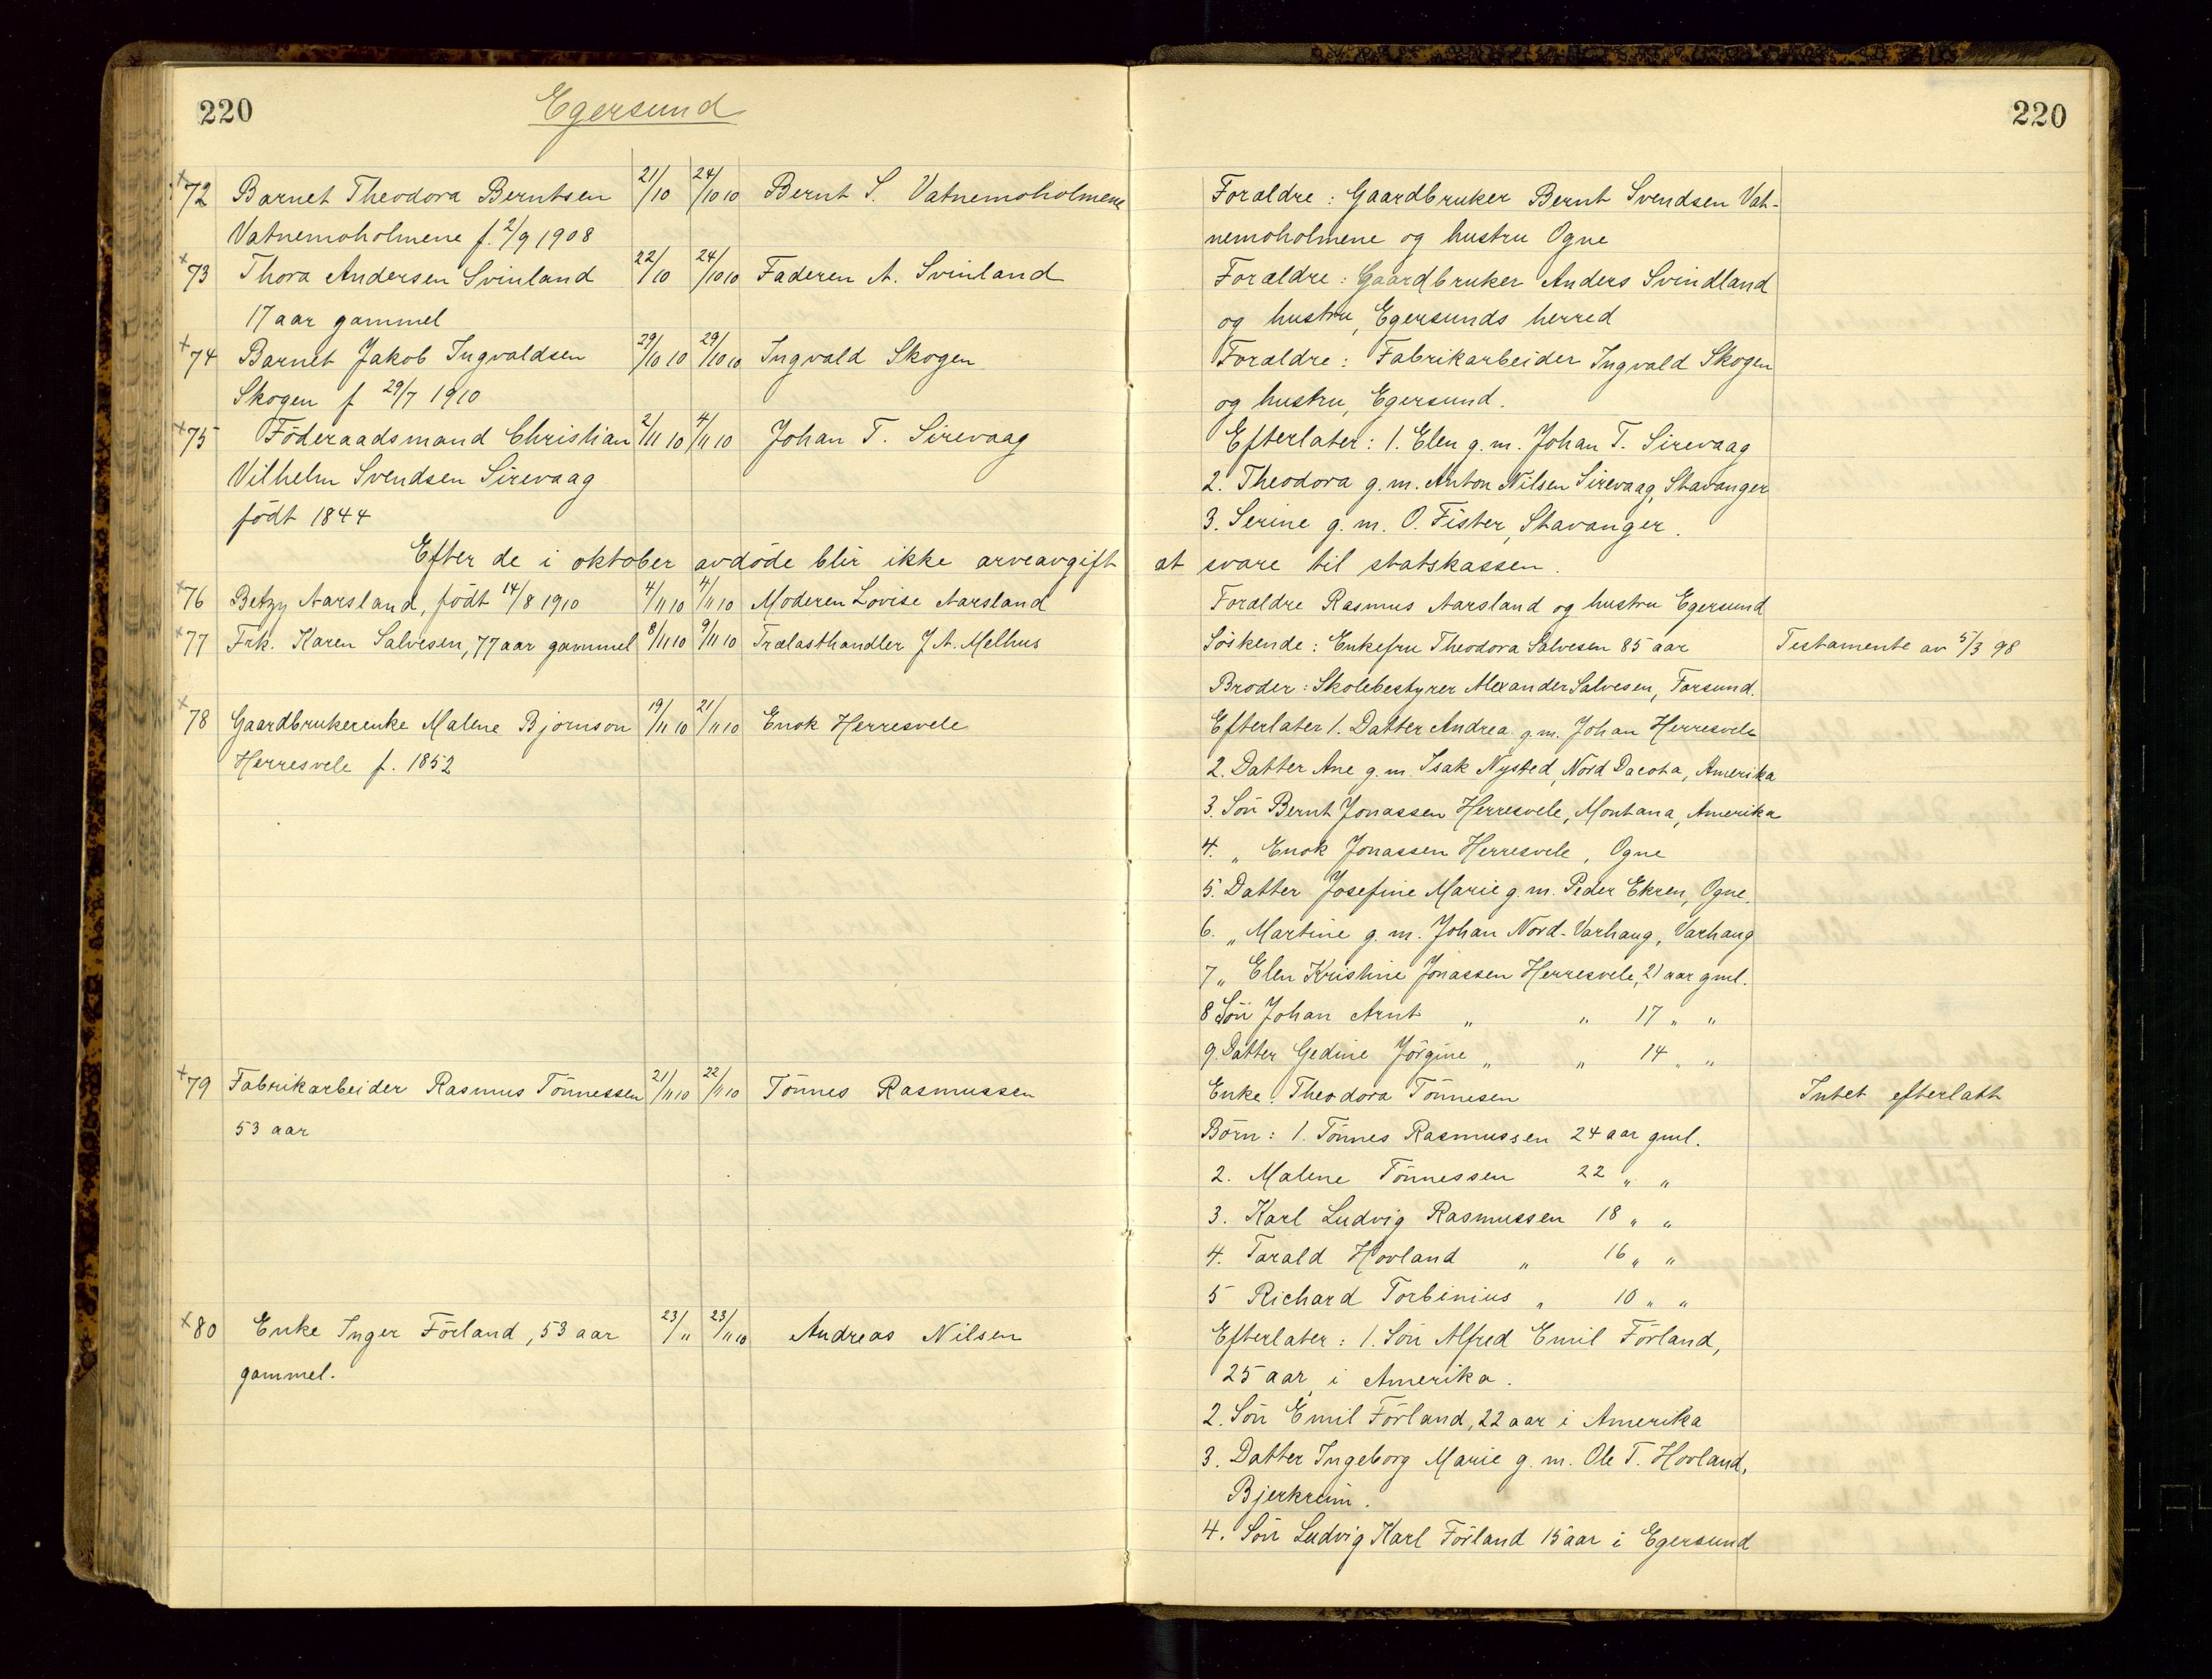 220
Egersund
220
72 Barnet Theodora Berntsen 21/10 24/10 10 Bernt S. Vatnemoholmene Forældre: Gaardbruker Bernt Svendsen Vat-
Vatnemoholmene f. 2/9 1908 nemoholmene og hustru Ogne
73 Thora Andersen Svinland 22/10 24/10 10 Faderen A. Svinland Forældre: Gaardbruker Anders Svindland
17 aar gammel og hustru, Egersunds herred
74 Barnet Jakob Ingvaldsen 29/10 10 29/10 10 Ingvald Skogen Forældre: Fabrikarbeider Ingvald Skogen
Skogen f 29/7 1910 og hustru, Egersund.
75 Föderaadsmand Christian 2/11 10 4/11 10 Johan T. Sirevaag Efterlater: 1. Elen g. m. Johan T. Sirevaag
Vilhelm Svendsen Sirevaag 2. Theodora g. m. Anton Nilsen Sirevaag, Stavanger
födt 1844 3. Serine g. m. O. Fister, Stavanger.
Efter de i oktober avdöde blir ikke arveavgift at svare til statskassen.
76 Betzy Aarsland, födt 14/8 1910 4/11 10 4/11 10 Moderen Lovise Aarsland Forældre Rasmus Aarsland og hustru Egersund
77 Frk. Karen Salvesen, 77 aar gammel 8/11 10 9/11 10 Trælasthandler J A. Melhus Söskende: Enkefru Theodora Salvesen 85 aar Testamente av 5/3 98
Broder: Skolebestyrer Alexander Salvesen, Farsund.
78 Gaardbrukerenke Malene Bjornson 19/11 10 21/11 10 Enok Herresvele Efterlater 1. Datter Andrea g. m. Johan Herresvele
Herresvele f. 1852 2. Datter Ane g. m. Isak Nysted, Nord Dacota, Amerika
3. Sön Bernt Jonassen Herresvele, Montana, Amerika
4. " Enok Jonassen Herresvele, Ogne
5. Datter Josefine Marie g. m. Peder Ekren, Ogne.
6. " Martine g. m. Johan Nord-Varhaug, Varhaug
7 " Elen Kristine Jonassen Herresvele, 21 aar gml.
8 Sön Johan Arnt " " 17 " "
9. Datter Gedine Jörgine " " 14 " "
79 Fabrikarbeider Rasmus Tönnessen 21/11 10 22/11 10 Tönnes Rasmussen Enke: Theodora Tönnesen Intet efterlatt
53 aar Börn: 1. Tönnes Rasmussen 24 aar gml.
2. Malene Tönnessen 22 " "
3. Karl Ludvig Rasmussen 18 " "
4. Tarald Hovland " 16 " "
5 Richard Torbinius " 10 " "
80 Enke Inger Förland, 53 aar 23/11 23/11 10 Andreas Nilsen Efterlater: 1. Sön Alfred Emil Förland,
gammel. 25 aar, i Amerika.
2. Sön Emil Förland, 22 aar i Amerika
3. Datter Ingeborg Marie g. m. Ole T. Hovland,
Bjerkreim.
4. Sön Ludvig Karl Förland 15 aar i Egersund